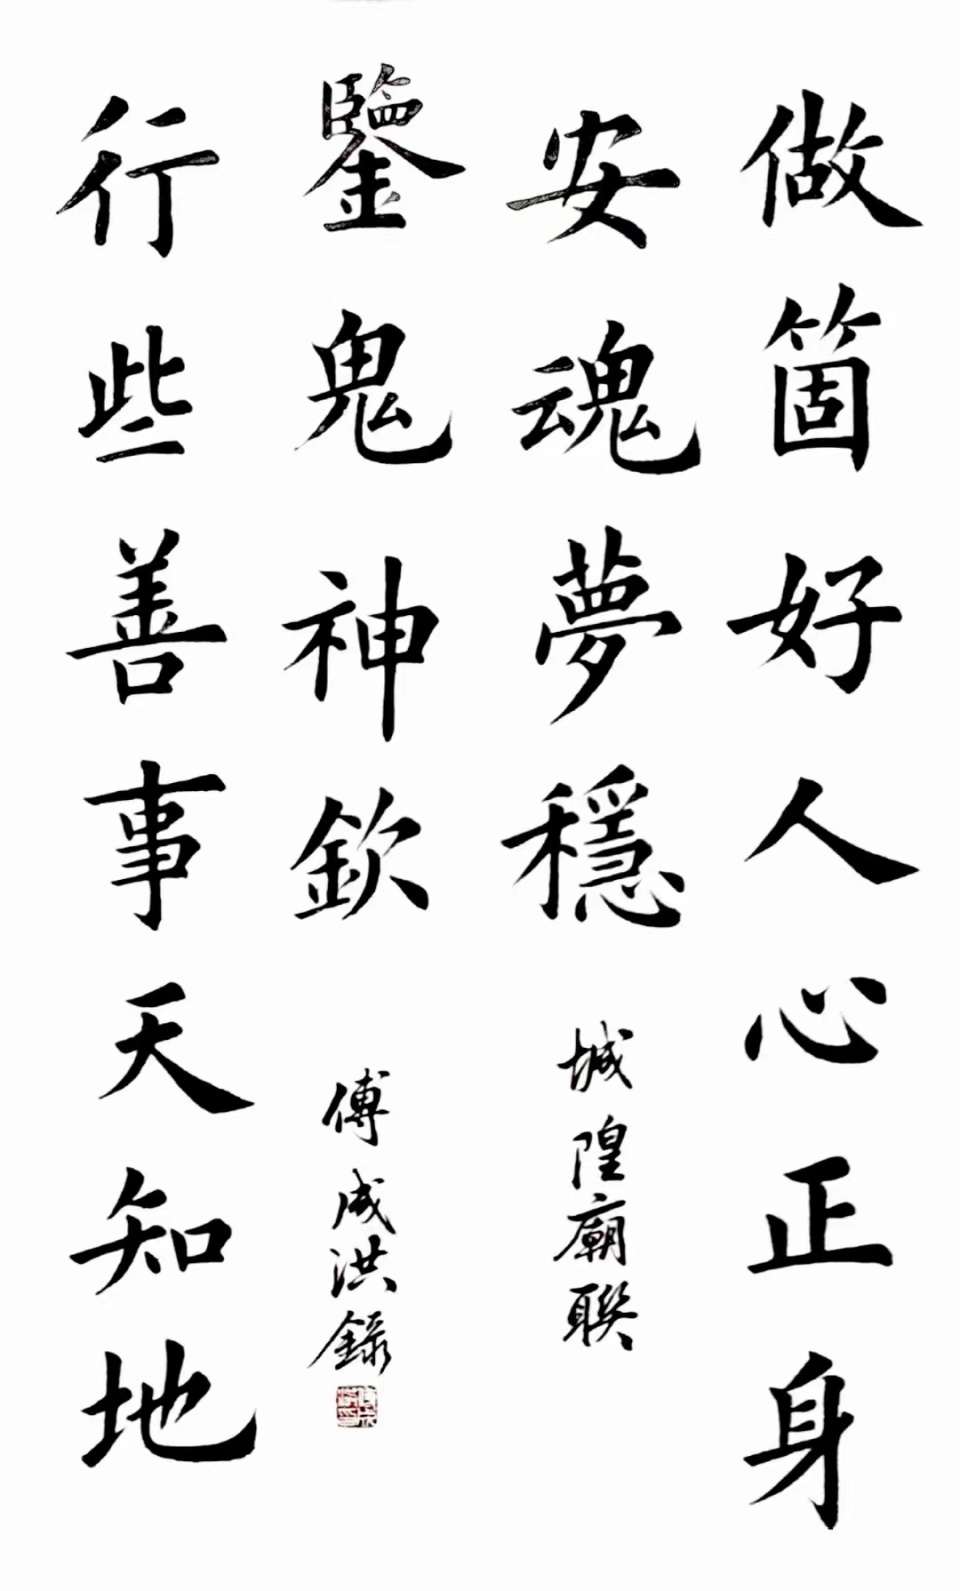 做箇好人心正身
安魂夢穩
行些善事天知地
鑒鬼神欽
城隍廟聯
傅成洪錄